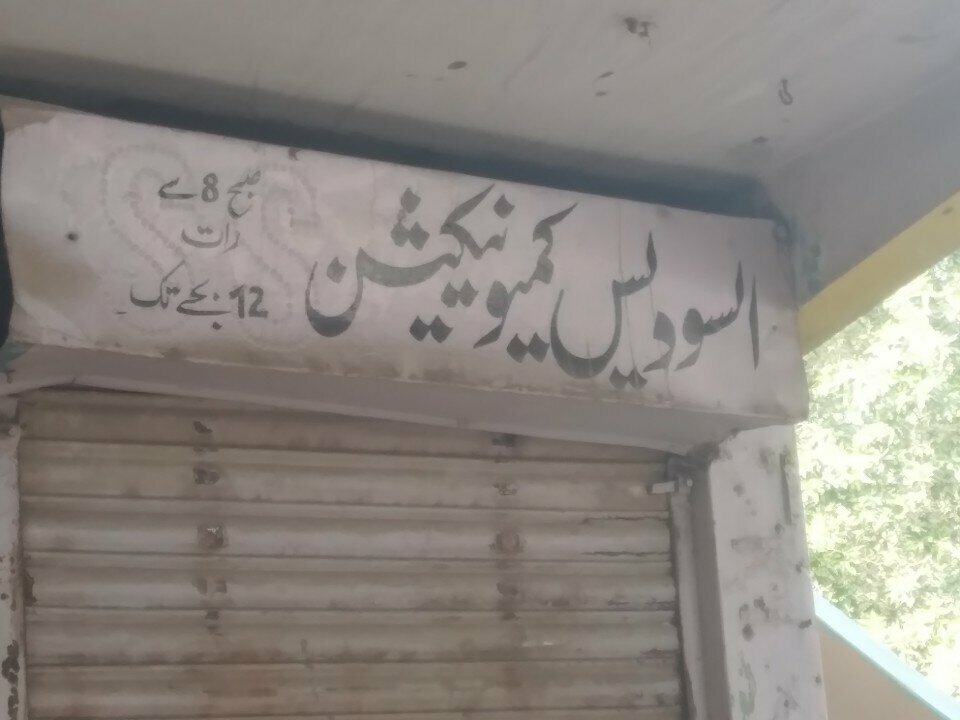 السودیس کمیونیکیشن
صبح 8 سے
رات
12 بجے تک